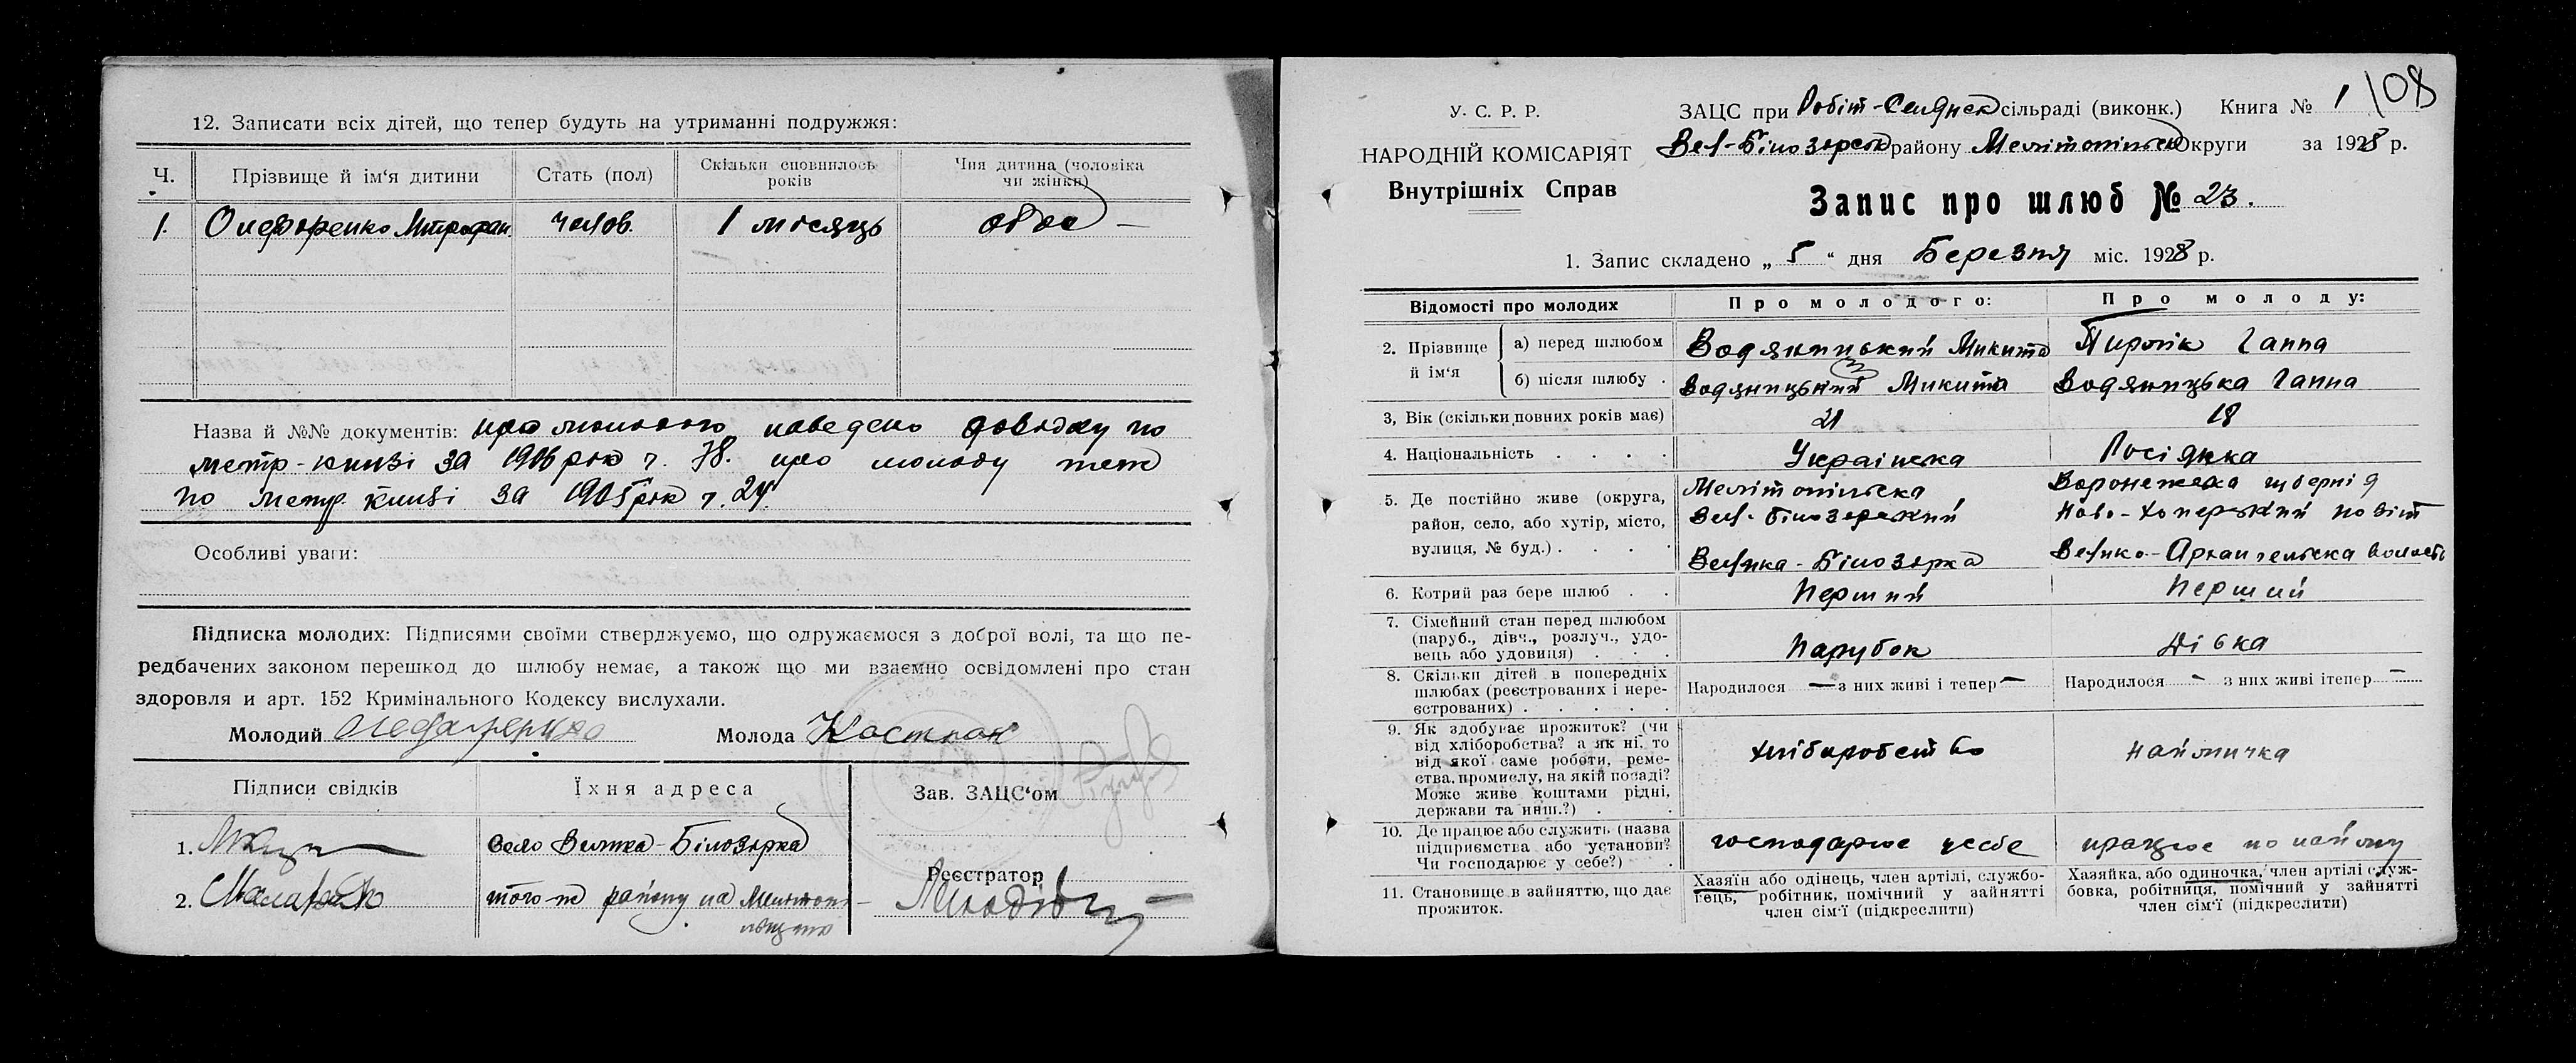 12. Записати всіх дітей, що тепер будуть на утриманні подружжя:
Ч. Прізвище й ім'я дитини Стать (пол) Скільки сповнилось років Чия дитина (чоловіка чи жінки)
1. Онефоренко Митрофан. чолов. 1 місяць обоє —
Назва й №№ документів: про молодого наведено довідку по
метр-книзі за 1906 рок ч. 78. про молоду теж
по метр. книзі за 1905 рок ч. 24.
Особливі уваги:
Підписка молодих: Підписями своїми стверджуємо, що одружаємося з доброї волі, та що пе-
редбачених законом перешкод до шлюбу немає, а також що ми взаємно освідомлені про стан
здоровля и арт. 152 Кримінального Кодексу вислухали.
Молодий Молода Костюк
Підписи свідків Їхня адреса Зав. ЗАЦС'ом
1. село Велика-Білозірка
Реєстратор
2. того-ж району на Мелітоп
У. С. Р. Р.
НАРОДНІЙ КОМІСАРІЯТ
Внутрішніх Справ
ЗАЦС при Робіт-Селянск сільраді (виконк.) Книга № 1 108
Вел-Білозерськ району Мелітопільск Округи за 1928 р.
Запис про шлюб № 23.
1. Запис складено „ 5 “ дня Березня міс. 1928 р.
Відомості про молодих Про молодого: Про молоду:
2. Прізвище й ім'я а) перед шлюбом Водяницький Микита Пирлік Ганна
б) після шлюбу Водяницький Микита Водяницька Ганна
3, Вік (скільки повних років має) 21 18
4. Національність Українска Росіянка
5. Де постійно живе (округа, район, село, або хутір, місто, вулиця, № буд.) Мелітопільска Вел-Білозерский Велика-Білозірка Воронежска губернія Ново-Хоперький повіт Велико-Архангельска волость
6. Котрий раз бере шлюб Перший Перший
7. Сімейний стан перед шлюбом (паруб., дівч., розлуч., удовець або удовиця) Парубок Дівка
8. Скільки дітей в попередніх шлюбах (реєстрованих і нереєстрованих) Народилося — з них живі і тепер — Народилося - з них живі і тепер —
9. Як здобуває прожиток? (чи від хліборобства? а як ні, то від якої саме роботи, ремества, промислу, на якій посаді? Може живе коштами рідні, держави та инш.?) хліборобство наймичка
10. Де працює або служить (назва підприємства або установи? Чи господарює у себе?) господарює у себе працює по найому
11. Становище в зайняттю, що дає прожиток. Хазяїн або одінець, член артілі, службогець, робітник, помічний у зайнятті член сім'ї (підкреслити) Хазяйка, або одиночка, член артілі служ-бовка, робітниця, помічний у зайнятті член сім'ї (підкреслити)